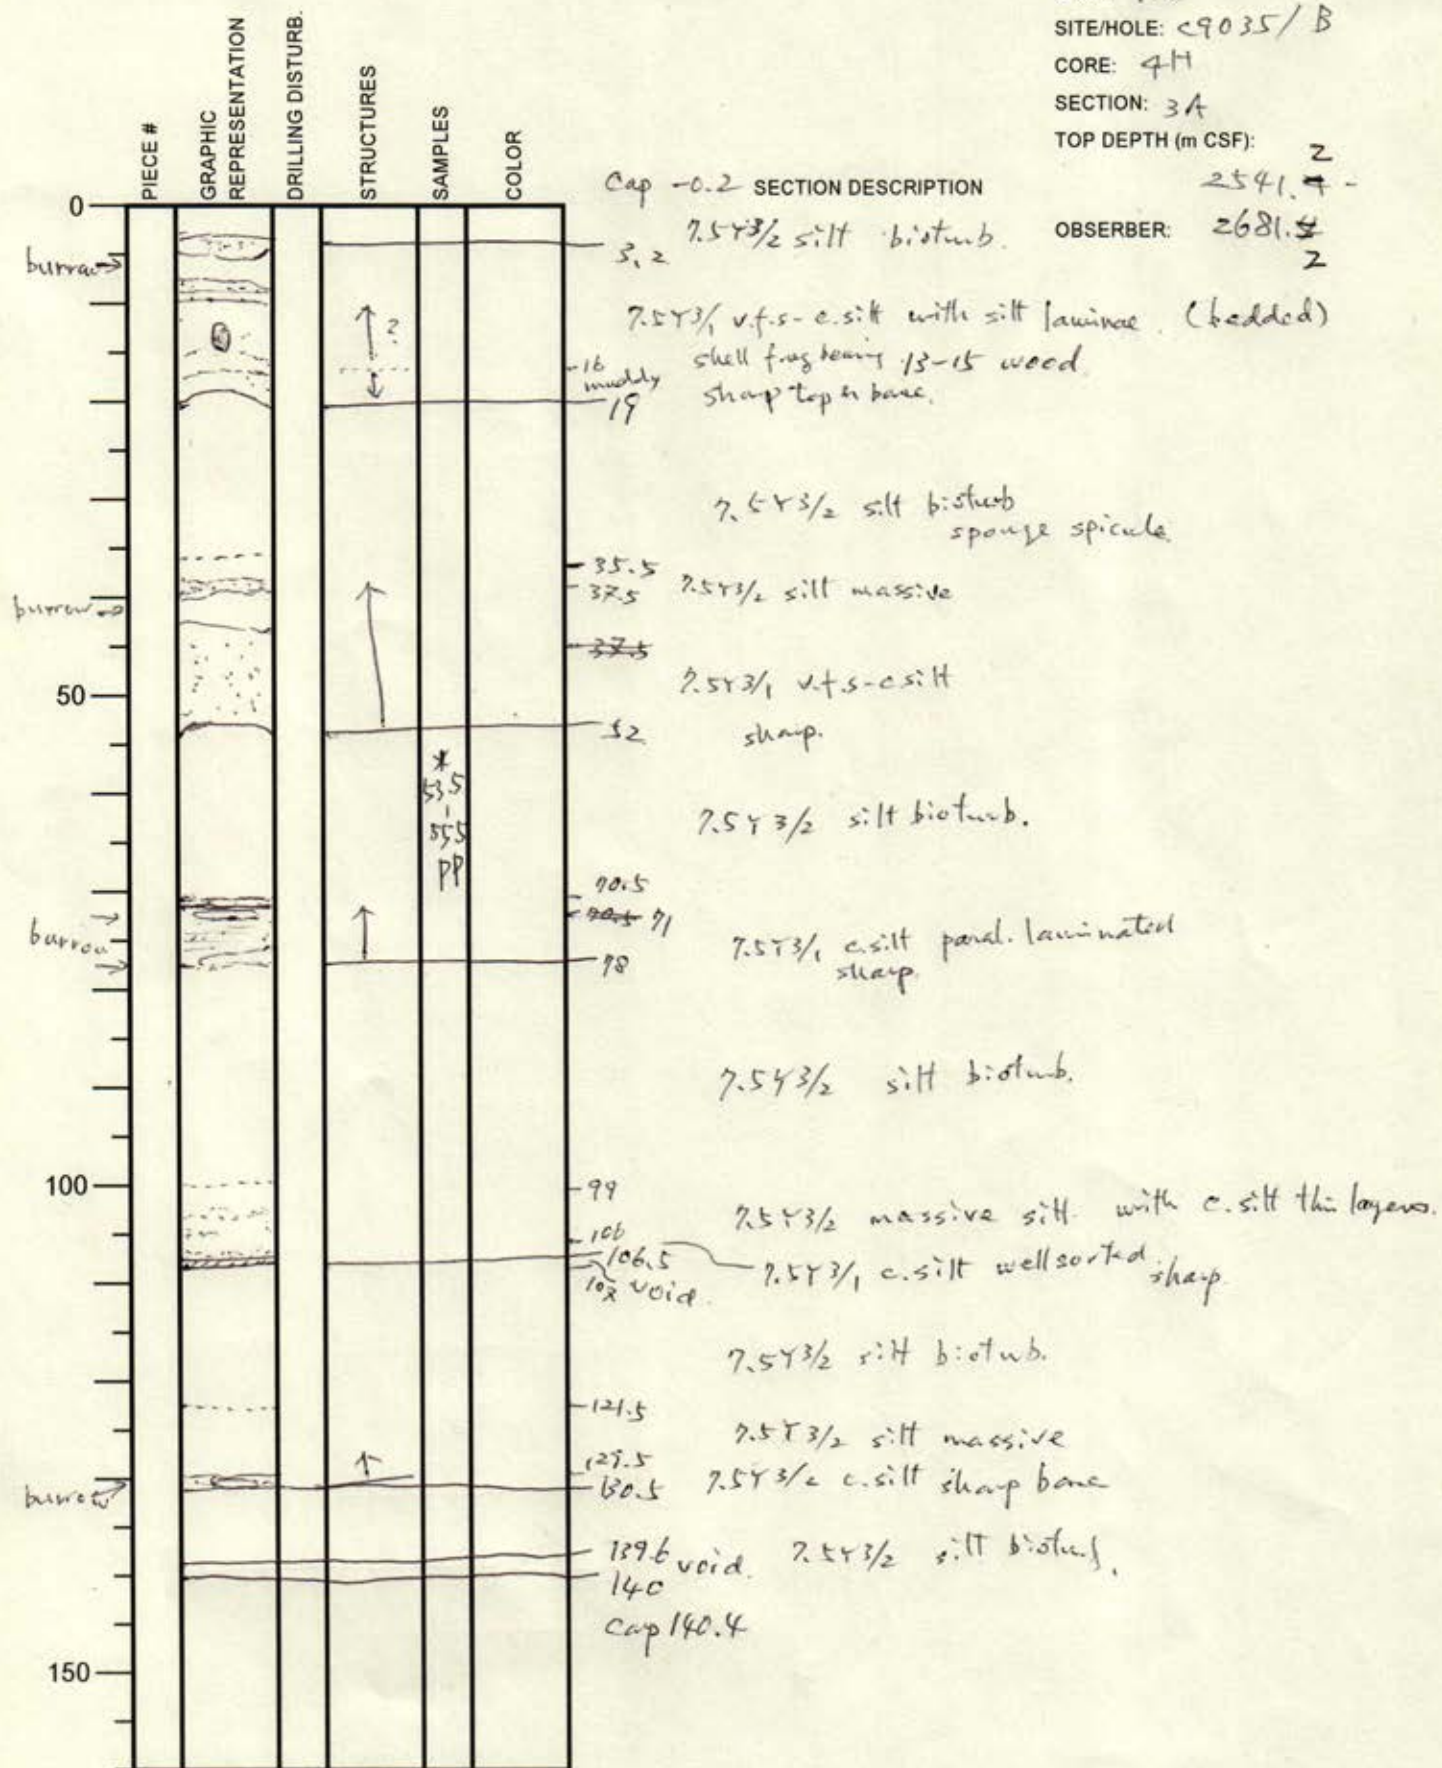 SITE/HOLE: C9035/B
CORE: 4H
SECTION: 3A
TOP DEPTH (m CSF):
2
2541.4 -
OBSERBER: 2681.
2
PIECE #
GRAPHIC REPRESENTATION
DRILLING DISTURB.
STRUCTURES
SAMPLES
COLOR
Cap -0.2 SECTION DESCRIPTION
0
7.5Y3/2 silt bioturb.
3.2
burrow
7.5Y3/1 v.f.s-c.silt with silt laminae. (bedded)
?
shell frag bearing 13-15 wood
16
muddy
sharp top & base.
19
7.5Y3/2 silt bioturb
sponge spicule
35.5
37.5 7.5Y3/2 silt massive
burrow
37.5
7.5Y3/1 v.f.s-c silt
50
52 sharp.
*
53.5
55.5
PP
7.5Y3/2 silt bioturb.
70.5
70.5 71
burrow
7.5Y3/1 c.silt paral. laminated
78 sharp.
7.5Y3/2 silt bioturb.
100
99
7.5Y3/2 massive silt with c.silt thin layers.
106
106.5 7.5Y3/1 c.silt well sorted sharp
void.
7.5Y3/2 silt bioturb.
121.5
7.5Y3/2 silt massive
129.5
burrow
130.5 7.5Y3/2 c.silt sharp base
139.6 void. 7.5Y3/2 silt bioturb.
140
Cap 140.4
150